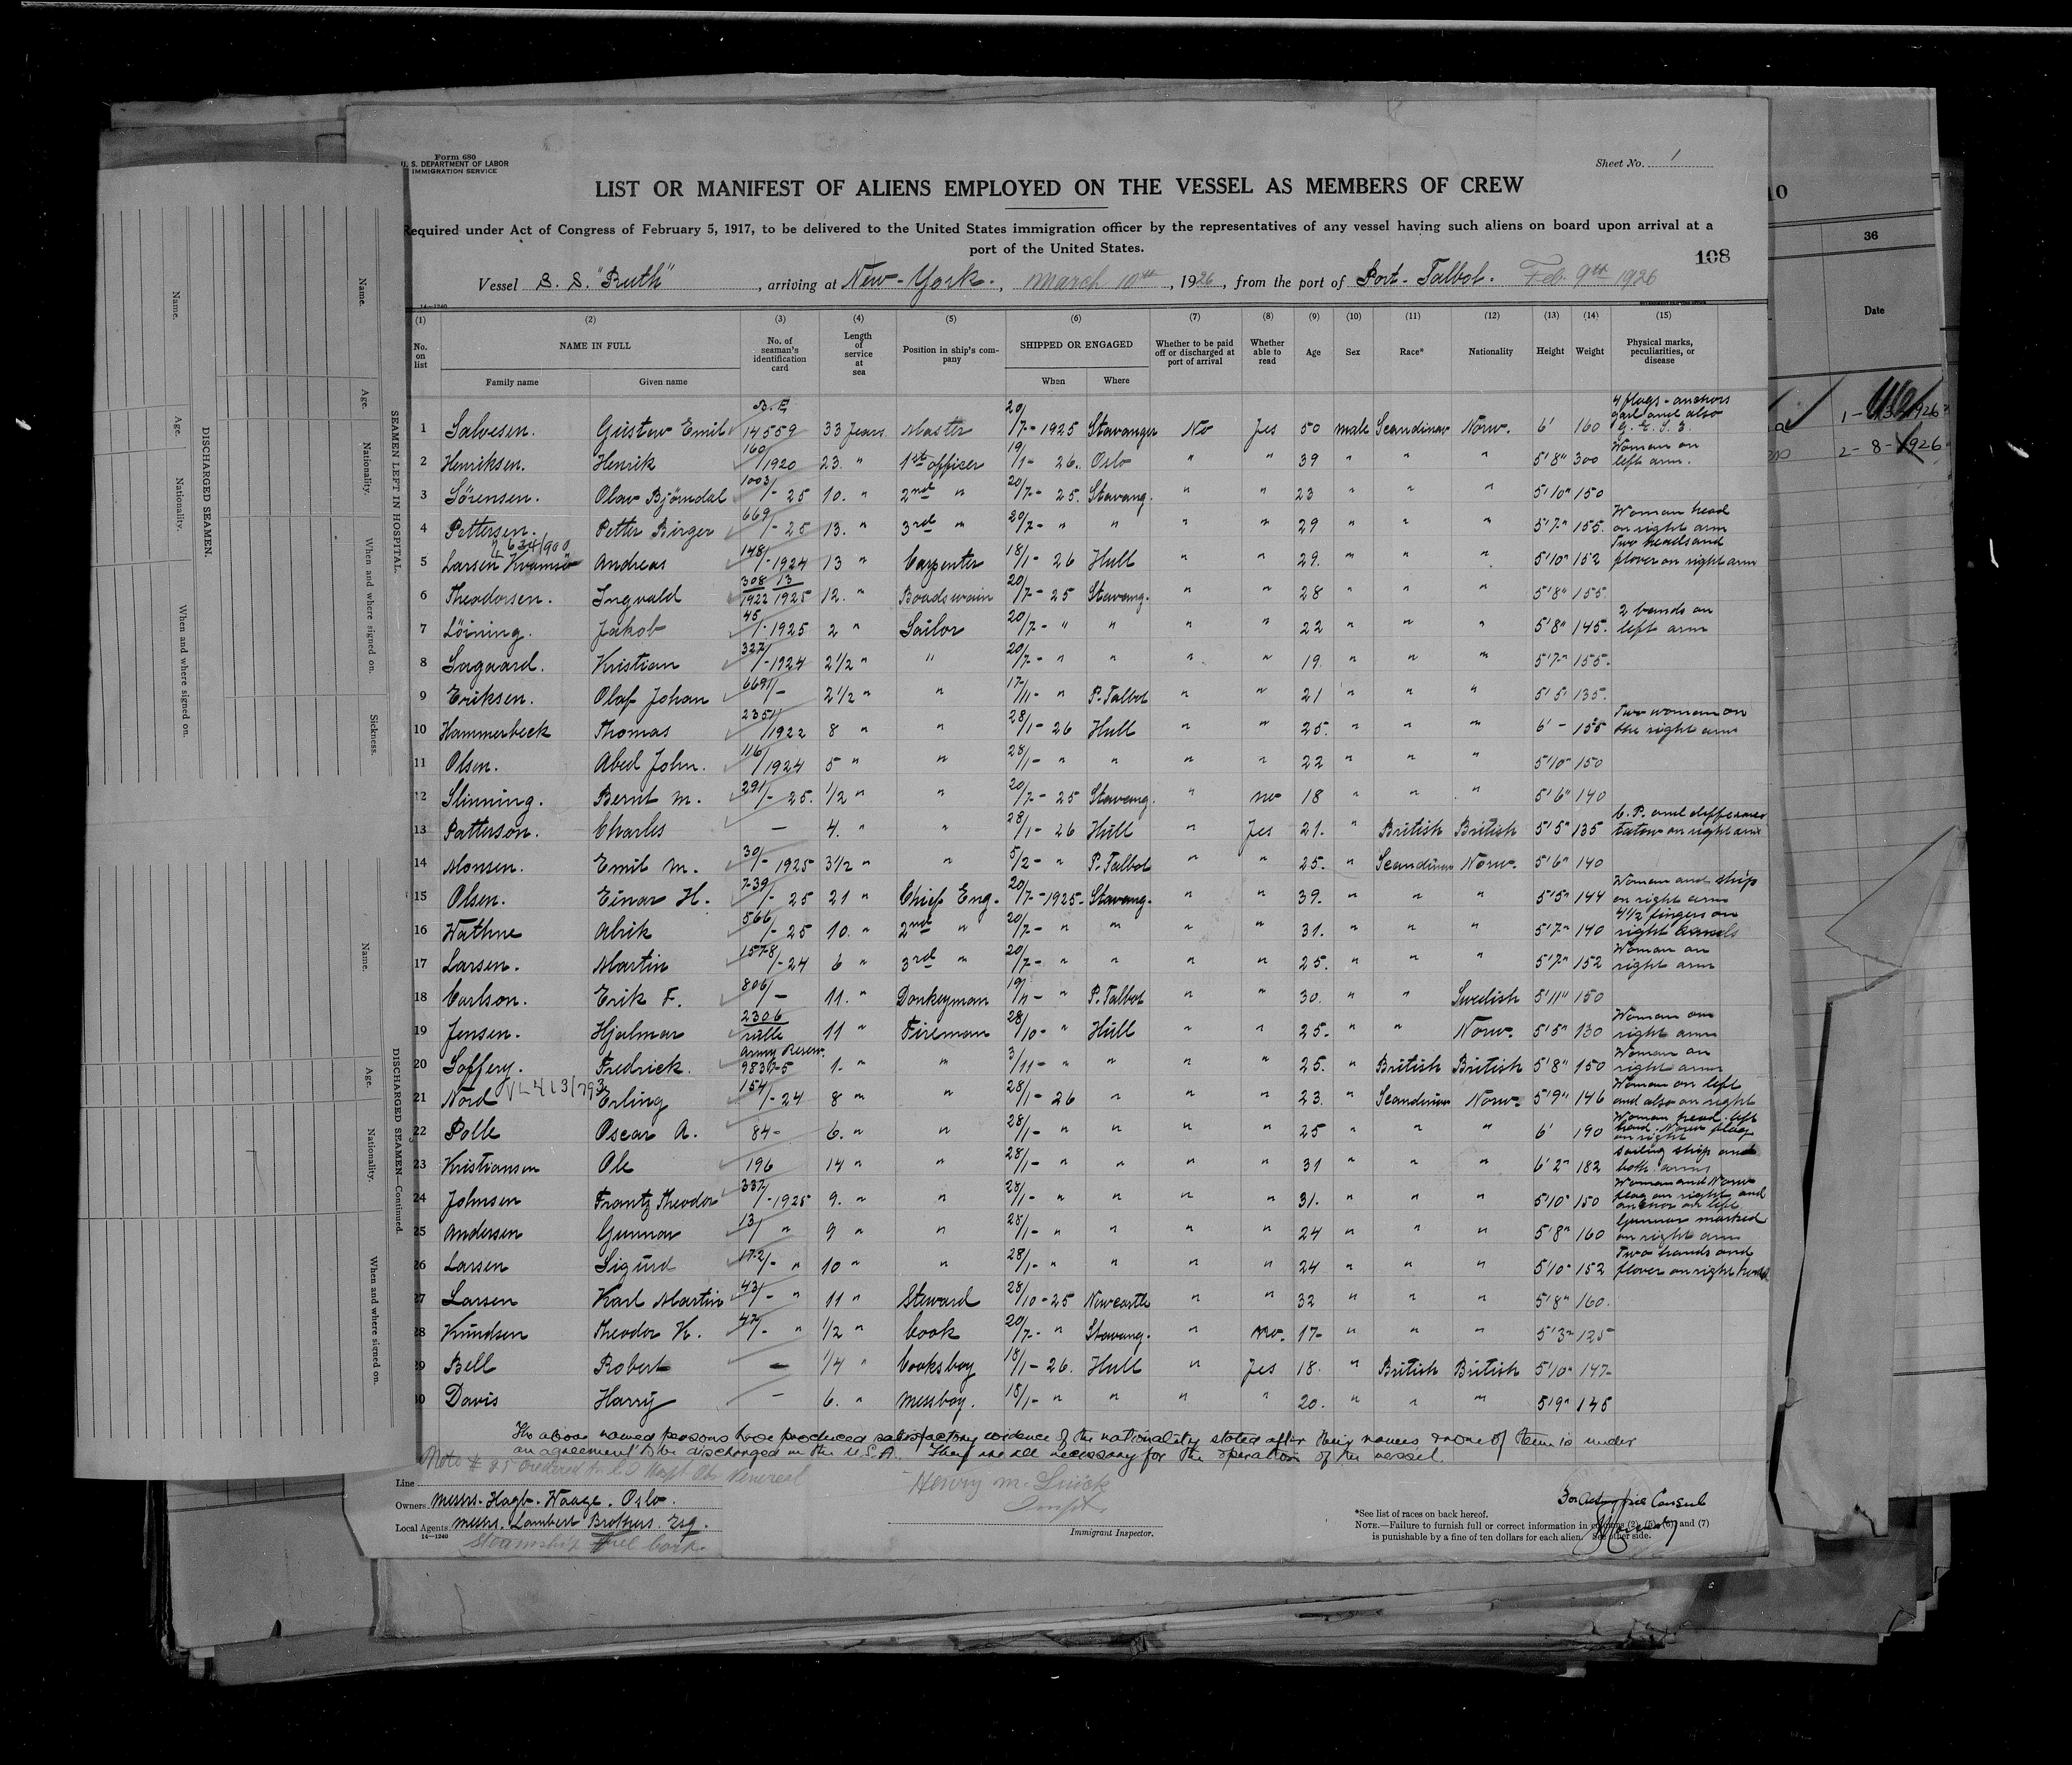 Form 680
U. S. DEPARTMENT OF LABOR
IMMIGRATION SERVICE
Sheet No. 1
LIST OR MANIFEST OF ALIENS EMPLOYED ON THE VESSEL AS MEMBERS OF CREW
Required under Act of Congress of February 5, 1917, to be delivered to the United States immigration officer by the representatives of any vessel having such aliens on board upon arrival at a
port of the United States.
108
Vessel S. S. "Ruth", arriving at New-York., March 10th, 1926, from the port of Port-Talbot. Feb. 9th 1926
14—1240
(1) (2) (3) (4) (5) (6) (7) (8) (9) (10) (11) (12) (13) (14) (15)
No. on list NAME IN FULL No. of seaman's identification card Length of service at sea Position in ship's company SHIPPED OR ENGAGED Whether to be paid off or discharged at port of arrival Whether able to read Age Sex Race* Nationality Height Weight Physical marks, peculiarities, or disease
Family name Given name When Where
1 Salvesen. Gustav Emil 14559 33 Years Master 20/7-1925 Stavanger No Yes 50 male Scandinav Norw. 6' 160 4 flags-anchors girl and also G. E. S. 3.
2 Henriksen. Henrik 160/1920 23. " 1st officer 19/1- 26. Oslo " " 39 " " " 5'8" 300 Woman on left arm.
3 Sörensen. Olav Björndal 1003/- 25 10. " 2nd " 20/7- 25. Stavang. " " 23 " " " 5'10" 150
4 Pettersen. Petter Birger 669/- 25 13. " 3rd " 20/7- " " " " 29 " " " 5'7" 155. Woman head on right arm
5 Larsen Kvamsö Andreas 148/-1924 13 " Carpenter 18/1- 26 Hull " " 29. " " " 5'10" 152 Two heads and flover on right arm
6 Theodorsen. Ingvald 308/1922 13/1925 12. " Boadswain 20/7- 25 Stavang. " " 28 " " " 5'8" 155
7 Löining. Jakob 45/-1925 2 " Sailor 20/7- " " " " 22 " " " 5'8" 145. 2 bands on left arm
8 Sagaard. Kristian 327/-1924 2 1/2 " " 20/7- " " " " 19. " " " 5'7" 155.
9 Eriksen. Olaf Johan 6691/- 2 1/2 " " 17/11- " P. Talbot " " 21 " " " 5'5" 135.
10 Hammerbeck Thomas 2351/1922 8 " " 28/1- 26 Hull " " 25. " " " 6' - 155 Two woman on the right arm
11 Olsen. Abed John. 116/1924 5 " " 28/1- " " " " 22 " " " 5'10" 150
12 Slinning. Bernt M. 291/- 25. 1/2 " " 20/7- 25 Stavang. " no 18 " " " 5'6" 140
13 Patterson. Charles — 4. " " 28/1- 26 Hull " Yes 21. " British British 5'5" 135 C. P. and differance tatow on right arm
14 Monsen. Emil M. 30/- 1925 3 1/2 " " 5/2- " P. Talbot " " 25. " Scandinav Norw. 5'6" 140
15 Olsen. Einar H. 739/- 25 21 " Chief Eng. 20/7-1925- Stavang. " " 39. " " " 5'5" 144 Woman and ship on right arm
16 Wathne Alrik 566/- 25 10. " 2nd " 20/7- " " " " 31. " " " 5'7" 140 4 1/2 fingers on right hands
17 Larsen. Martin 1578/-24 6 " 3rd " 20/7- " " " " 25. " " " 5'7" 152 Woman on right arm
18 Carlson. Erik F. 806/- 11. " Donkeyman 19/11- " P. Talbot " " 30. " " Swedish 5'11" 150
19 Jensen. Hjalmar 2306 11 " Fireman 28/10- " Hull " " 25. " " Norw. 5'5" 130 Woman on right arm
20 Soffery. Fredrick. Army Reserv. 1. " " 3/11- " " " " 25. " British British 5'8" 150 Woman on right arm
21 Nord Erling 154/- 24 8 " " 28/1- 26 " " " 23. " Scandinav Norw. 5'9" 146 Woman on left and also on right
22 Polle Oscar A. 84- 6. " " 28/1- " " " " 25 " " " 6' 190 Woman head left hand. Norw flag on right
23 Kristiansen Ole 196 14 " " 28/1- " " " " 31 " " " 6'2" 182 Sailing ship and both arms
24 Johnsen Frantz Theodor 337/-1925 9. " " 28/1- " " " " 31. " " " 5'10" 150 Woman and Norw flag on right and anchor on left
25 Andersen Gunnar 13/ " 9 " " 28/1- " " " " 24 " " " 5'8" 160 Gunnar marked on right arm
26 Larsen Sigurd 172/- " 10 " " 28/1- " " " " 24 " " " 5'10" 152 Two hands and flover on right hand
27 Larsen Karl Martin 43/- " 11 " Steward 28/10-25 Newcastle " " 32 " " " 5'8" 160.
28 Knudsen Theodor K. 47/- " 1/2 " Cook 20/7- " Stavang. " no. 17- " " " 5'3" 125
29 Bell Robert — 1/4 " Cooksboy 18/1- 26. Hull " Yes 18. " British British 5'10" 147-
30 Davis Harry — 6. " Messboy. 18/1- " " " " 20. " " " 5'9" 145
The above named persons have produced satisfactory evidence of the nationality stated after their names & none of them is under
an agreement to be discharged in the U.S.A. They are all necessary for the operation of the vessel.
Note # 25 Ordered to Hospt Venereal
Line
Owners Messrs. Hagb. Waage. Oslo.
Local Agents Messrs. Lambert Brothers. Esq.
14—1240
Steamship Fuel Corp.
Immigrant Inspector.
For Acting Vice Consul
*See list of races on back hereof.
NOTE.—Failure to furnish full or correct information in columns (2), (5), (6) and (7)
is punishable by a fine of ten dollars for each alien. See other side.
SEAMEN LEFT IN HOSPITAL.
Name. Age. Nationality. When and where signed on. Sickness.
DISCHARGED SEAMEN.
Name. Age. Nationality. When and where signed on.
DISCHARGED SEAMEN—Continued.
Name. Age. Nationality. When and where signed on.
36
Date
2-8-1926